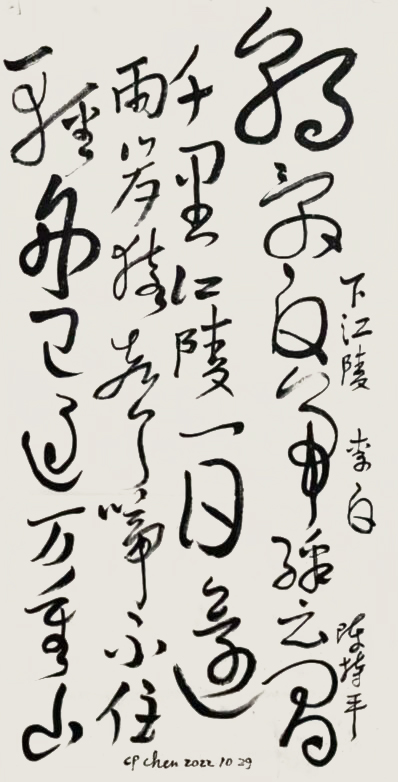 下江陵 李白 陈持平
朝辞白帝綵云間
千里江陵一日還
兩岸猿聲啼不住
輕舟已過万重山
CP Chen 2022 10 29